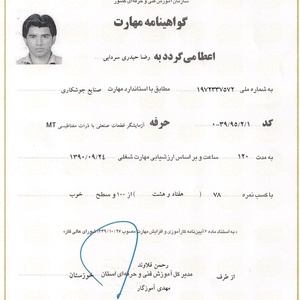 سازمان آموزش فنی و حرفه‌ای کشور
گواهینامه مهارت
اعطا می گردد به رضا حیدری سردابی
به شماره ملی ۱۹۷۲۳۳۷۵۷۲ مطابق با استاندارد مهارت صنایع جوشکاری
کد ۰-۳۹/۹۵/۲/۱ حرفه آزمایشگر قطعات صنعتی با ذرات مغناطیسی MT
به مدت ۱۲۰ ساعت و بر اساس ارزشیابی مهارت شغلی ۱۳۹۰/۰۹/۲۴
با کسب نمره ۷۸ ( هفتاد و هشت ) از ۱۰۰ و سطح خوب
از طرف
رحمن قلاوند
مدیر کل آموزش فنی و حرفه‌ای استان خوزستان
مهدی آموزگار